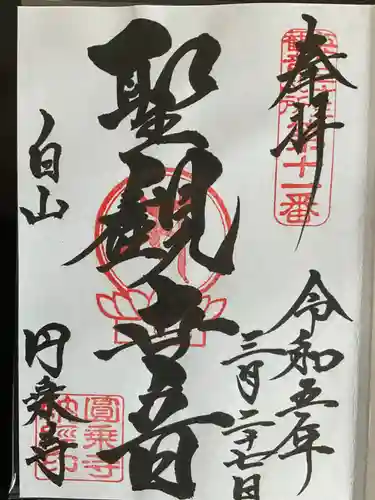 奉拝
令和五年
三月二十七日
聖観世音
白山
円乗寺
十一番
圓乗寺